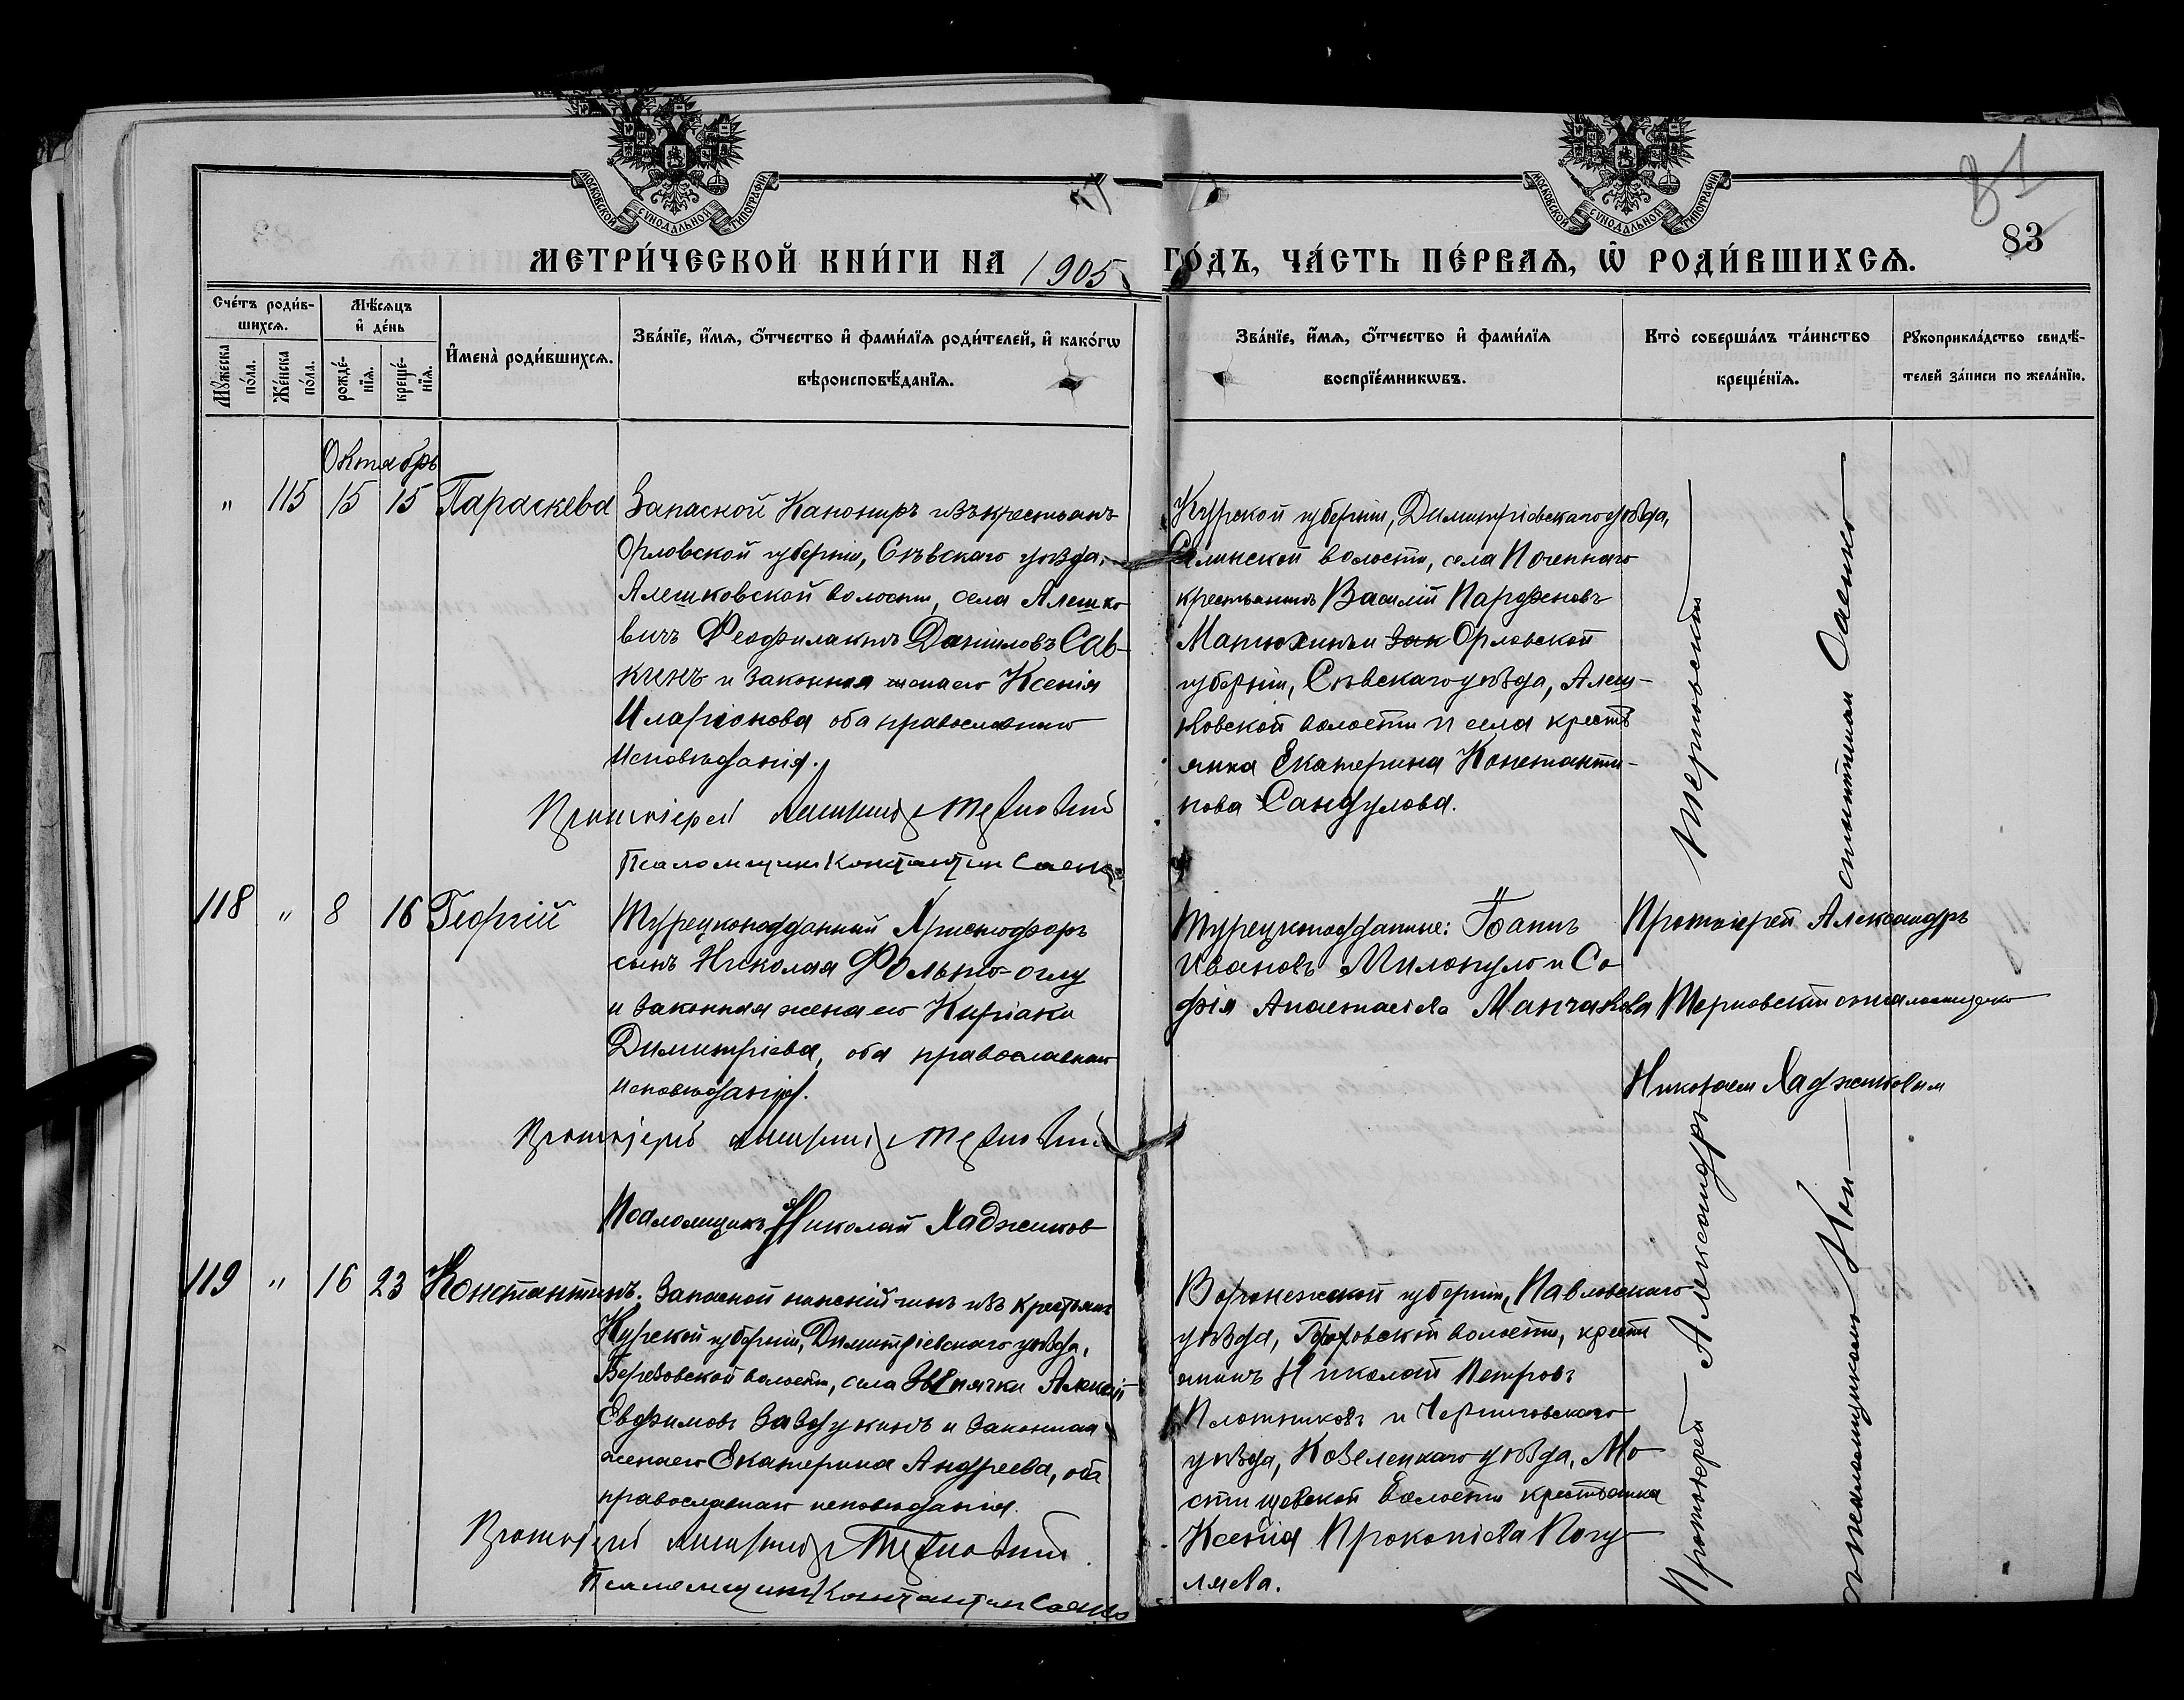 МОСКОВСКОЙ СѴНОДАЛЬНОЙ ТИПОГРАФІИ
МОСКОВСКОЙ СѴНОДАЛЬНОЙ ТИПОГРАФІИ
81
83
МЕТРИ́ЧЕСКОЙ КНИ́ГИ НА 1905 ГО́ДЪ, ЧА́СТЬ ПЕ́РВАѦ, Ѡ҆ РОДИ́ВШИХСѦ.
Сче́тъ роди́в-
шихсѧ.
Мꙋ́жеска по́ла.
Же́нска по́ла.
Мѣ́сѧцъ
и҆ де́нь
рожде́-
нїѧ.
креще́-
нїѧ.
И҆мена̀ роди́вшихсѧ.
Зва́нїе, и҆́мѧ, ѻ҆́тчество и҆ фами́лїѧ роди́телей, и҆ како́гѡ
вѣроисповѣ́данїѧ.
Зва́нїе, и҆́мѧ, ѻ҆́тчество и҆ фами́лїѧ
воспрїе́мникѡвъ.
Кто̀ соверша́лъ та́инство
креще́нїѧ.
Рꙋкоприкла́дство свидѣ́-
телей за́писи по жела́нїю.
Октябрь
" 115 15 15 Параскева
Запасной Канониръ изъ крестьянъ
Орловской губерніи, Сѣвскаго уѣзда,
Алешковской волости, села Алешко
вичъ Феофилактъ Даниловъ Сав-
кинъ и законная жена его Ксенія
Иларіонова оба православнаго
исповѣданія.
Протоіерей Александръ Терновскій
Псаломщикъ Константин Саенко
Курской губерніи, Димитріевскаго уѣзда,
волости, села
крестьянинъ Василій Парфеновъ
Матюхинъ и зак Орловской
губерніи, Сѣвскаго уѣзда, Алеш-
ковской волости и села кресть
янка Екатерина Константи-
нова Сандулова.
118 " 8 16 Георгій
Турецкоподданный Христофоръ
сынъ Николая Фолъто-оглу
и законная жена его Киріаки
Димитріева, оба православнаго
исповѣданія.
Протоіерей Александръ Терновскій
Псаломщикъ Николай Хаджинов
Турецкоподданные:
Ивановъ Милопуло и Со
фія Анастасіева
Протоіерей Александръ
Терновскій съ псаломщикомъ
Николаем Хаджиновым
119 " 16 23 Константинъ.
Запасной нижній чинъ изъ крестьянъ
Курской губерніи, Димитріевскаго уѣзда,
Березовской волости, села Звенячки Алексѣй
Евфимовъ и законная
жена его Екатерина Андреева, оба
православнаго исповѣданія.
Протоіерей Александръ Терновскій
Псаломщикъ Константин Саенко
Воронежской губерніи, Павловскаго
уѣзда, волости, крестья
янинъ Николай Петровъ
Плотниковъ и Черниговскаго
уѣзда, Козелецкаго уѣзда, Мо
стищевской волости крестьянка
Ксенія Прокопіева Погу
ляева.
Протоіерей Александръ Терновскій
съ псаломщикомъ Константиномъ Саенко